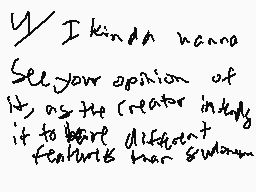 4/ I kinda wanna
See your opinion of
it, as the creator intends
it to have different
features than